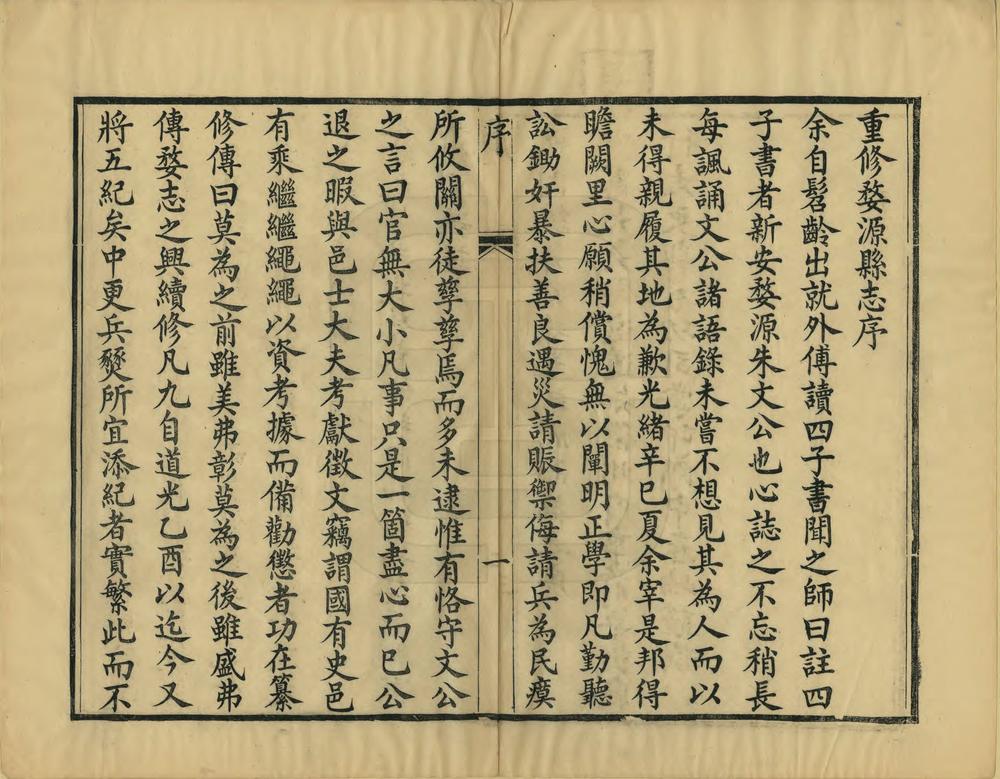 重修婺源縣志序
余自髫齡出就外傅讀四子書聞之師曰註四
子書者新安婺源朱文公也心誌之不忘稍長
每諷誦文公諸語錄未嘗不想見其為人而以
未得親履其地為歉光緒辛巳夏余宰是邦得
瞻闕里心願稍償愧無以闡明正學即凡勤聽
訟鋤奸暴扶善良遇災請賑禦侮請兵為民瘼
序
一
所攸關亦徒孳孳焉而多未逮惟有恪守文公
之言曰官無大小凡事只是一箇盡心而已公
退之暇與邑士大夫考獻徵文竊謂國有史邑
有乘繼繼繩繩以資考據而備勸懲者功在纂
修傳曰莫為之前雖美弗彰莫為之後雖盛弗
傳婺志之興續修凡九自道光乙酉以迄今又
將五紀矣中更兵燹所宜添紀者實繁此而不